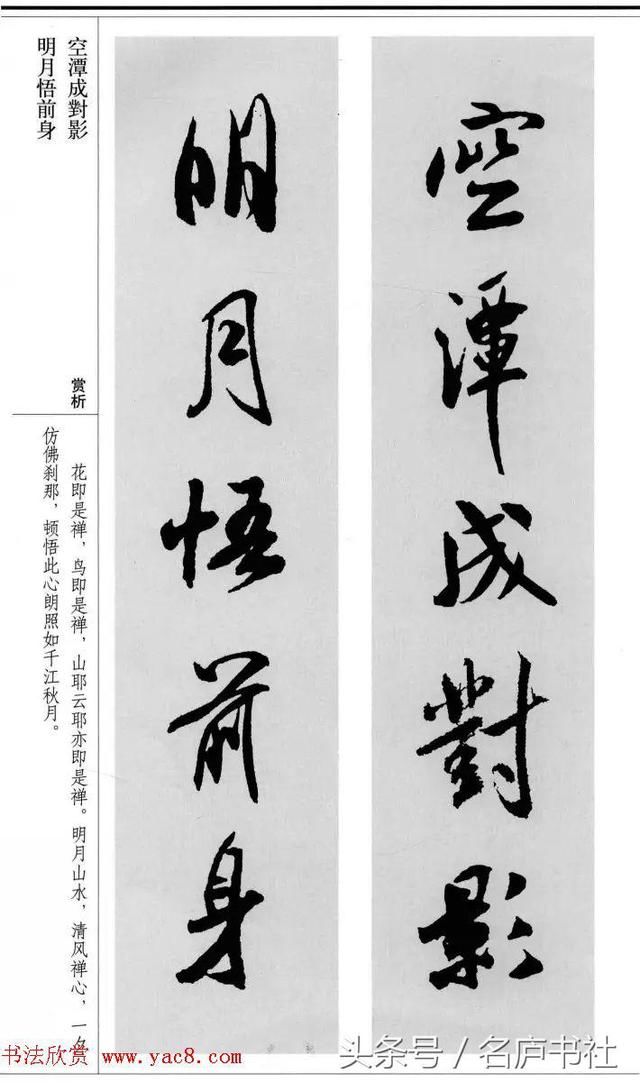 空潭成對影
明月悟前身
空潭成對影
明月悟前身
赏析
花即是禅，鸟即是禅，山耶云耶亦即是禅。明月山水，清风禅心，一夕
仿佛刹那，顿悟此心朗照如千江秋月。
书法欣赏 www.yac8.com
头条号 / 名庐书社